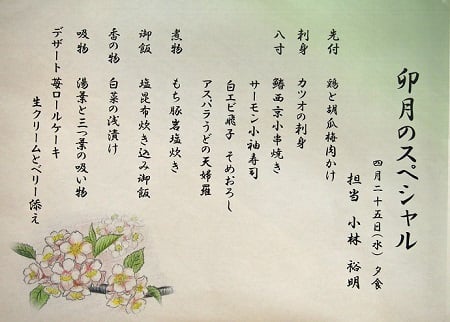 卯月のスペシャル
四月二十五日(水) 夕食
担当 小林 裕明
先付 鶏と胡瓜梅肉かけ
刺身 カツオの刺身
八寸 鰆西京小串焼き
サーモン小袖寿司
白エビ飛子 そめおろし
アスパラうどの天婦羅
煮物 もち豚岩塩炊き
御飯 塩昆布炊き込み御飯
香の物 白菜の浅漬け
吸物 湯葉と三つ葉の吸い物
デザート 苺ロールケーキ
生クリームとベリー添え